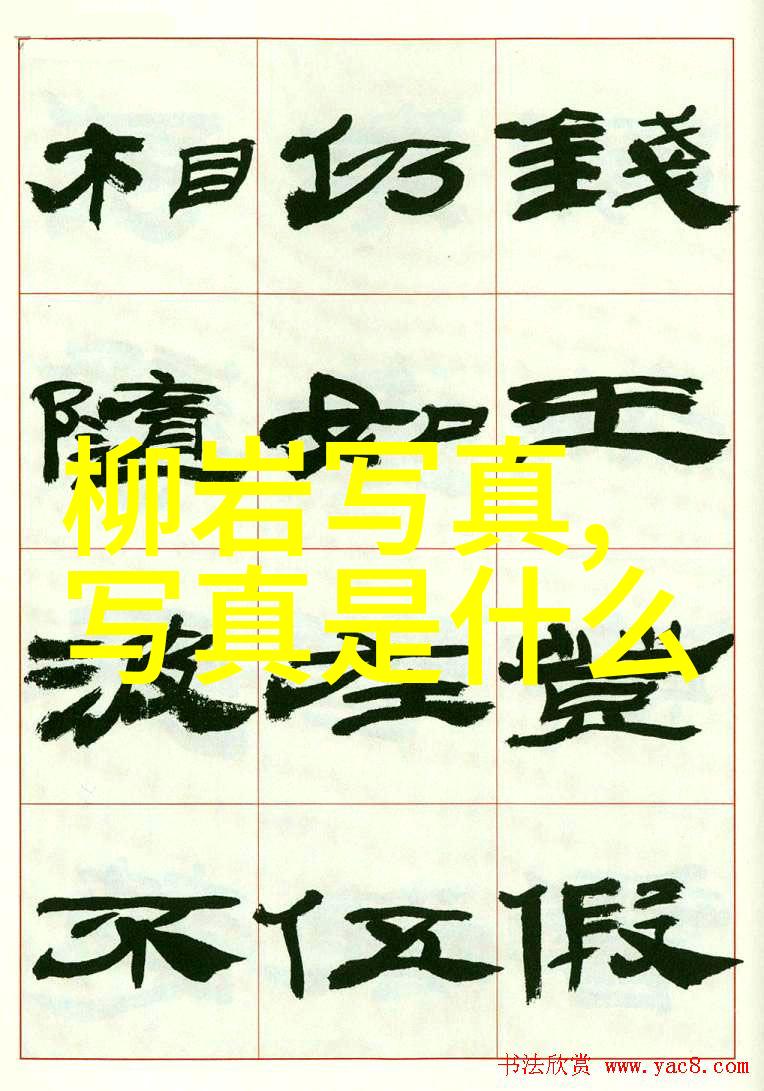 錢王登假
仍如在伍
相隨波不
柳岩写真,
写真是什么
书法欣赏 www.yac8.com